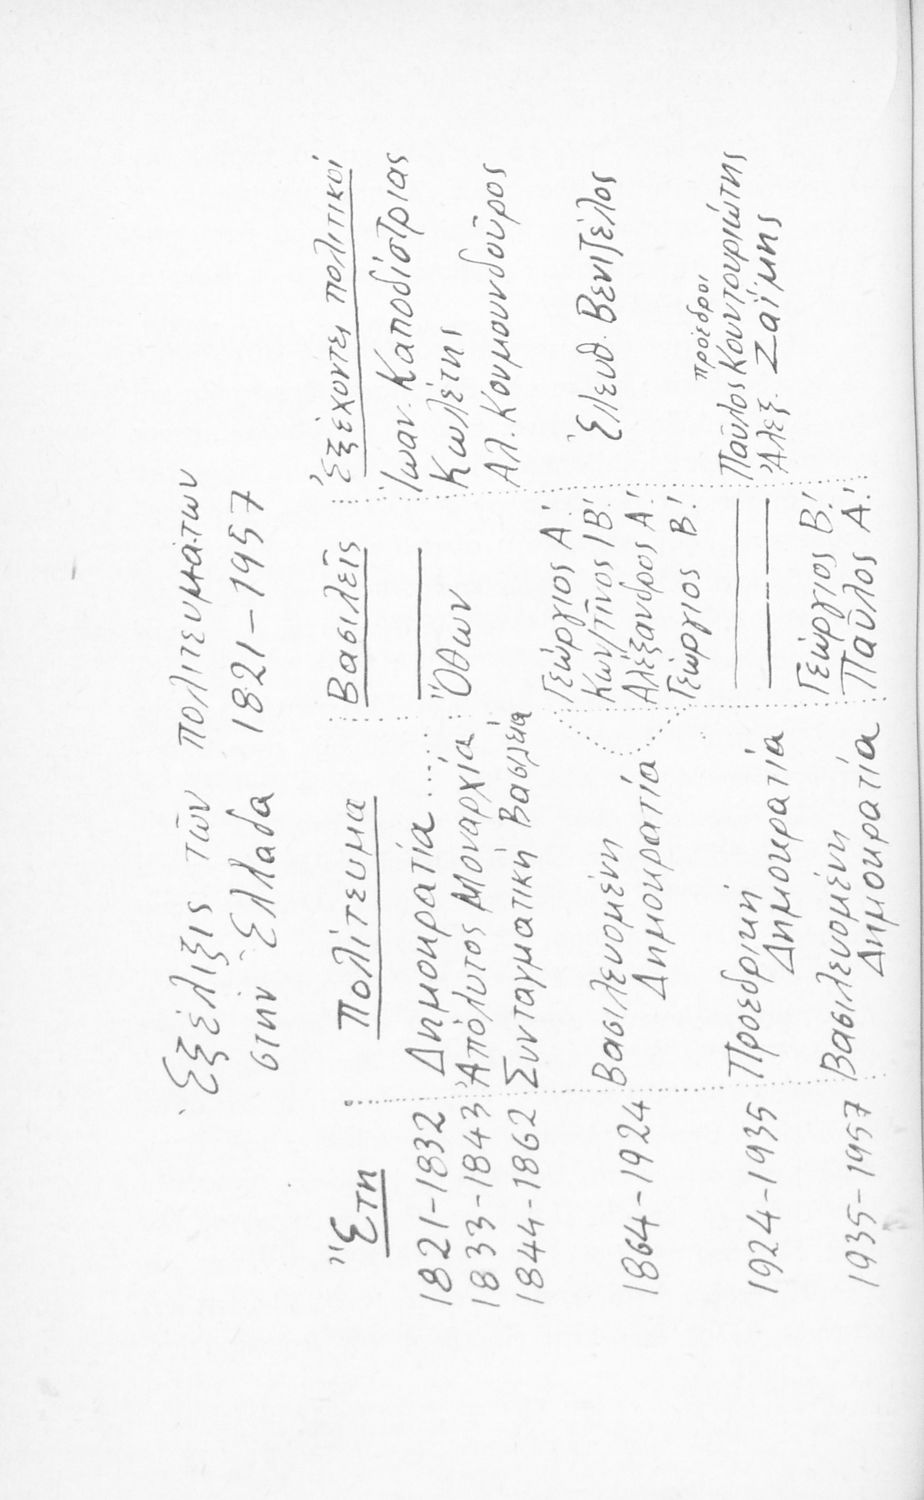 Ἐξέλιξις τῶν πολιτευμάτων
στὴν Ἑλλάδα 1821-1957
Ἔτη Πολίτευμα Βασιλεῖς Ἐξέχοντες πολιτικοί
1821-1832 Δημοκρατία ..... —— Ἰωαν. Καποδίστριας
1833-1843 Ἀπόλυτος Μοναρχία Ὄθων Κωλέτης
1844-1862 Συνταγματική Βασιλεία Αλ. Κουμουνδοῦρος
Γεώργιος Α΄
1864-1924 Βασιλευομένη Κων/τῖνος ΙΒ΄ Ἐλευθ. Βενιζέλος
Δημοκρατία Αλέξανδρος Α΄
Γεώργιος Β΄
πρόεδροι
1924-1935 Προεδρική —— Παῦλος Κουντουριώτης
Δημοκρατία —— Ἀλεξ. Ζαΐμης
1935-1957 Βασιλευομένη Γεώργιος Β΄
Δημοκρατία Παῦλος Α΄